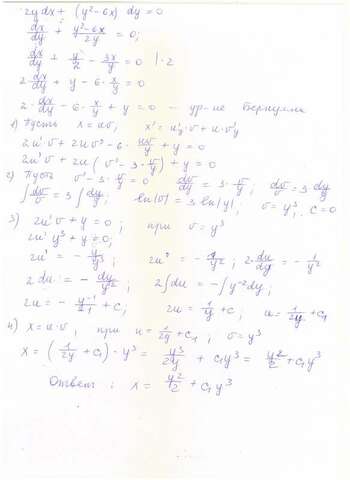 2y dx + (y² - 6x) dy = 0
dx/dy + (y² - 6x)/2y = 0;
dx/dy + y/2 - 3x/y = 0 | · 2
2 · dx/dy + y - 6 · x/y = 0
2 · dx/dy - 6 · x/y + y = 0 - ур-ие Бернулли
1) Пусть x = uv, x' = u'y · v + u · v'y
2u'v + 2uv' - 6 · uv/y + y = 0
2u'v + 2u(v' - 3 · v/y) + y = 0
2) Пусть v' - 3 · v/y = 0 dv/dy = 3 · v/y; dv/v = 3 dy/y
∫ dv/v = 3 ∫ dy/y; ln|v| = 3 ln|y|, v = y³, c = 0
3) 2u'v + y = 0; при v = y³
2u'y³ + y = 0;
2u' = - y/y³; 2u' = - 1/y²; 2 · du/dy = - 1/y²
2 du = - dy/y²; 2∫du = - ∫y⁻² dy;
2u = - y⁻¹/-1 + c; 2u = 1/y + c; u = 1/2y + c₁
4) x = u · v, при u = 1/2y + c₁, v = y³
x = (1/2y + c₁) · y³ = y³/2y + c₁y³ = y²/2 + c₁y³
Ответ: x = y²/2 + c₁y³